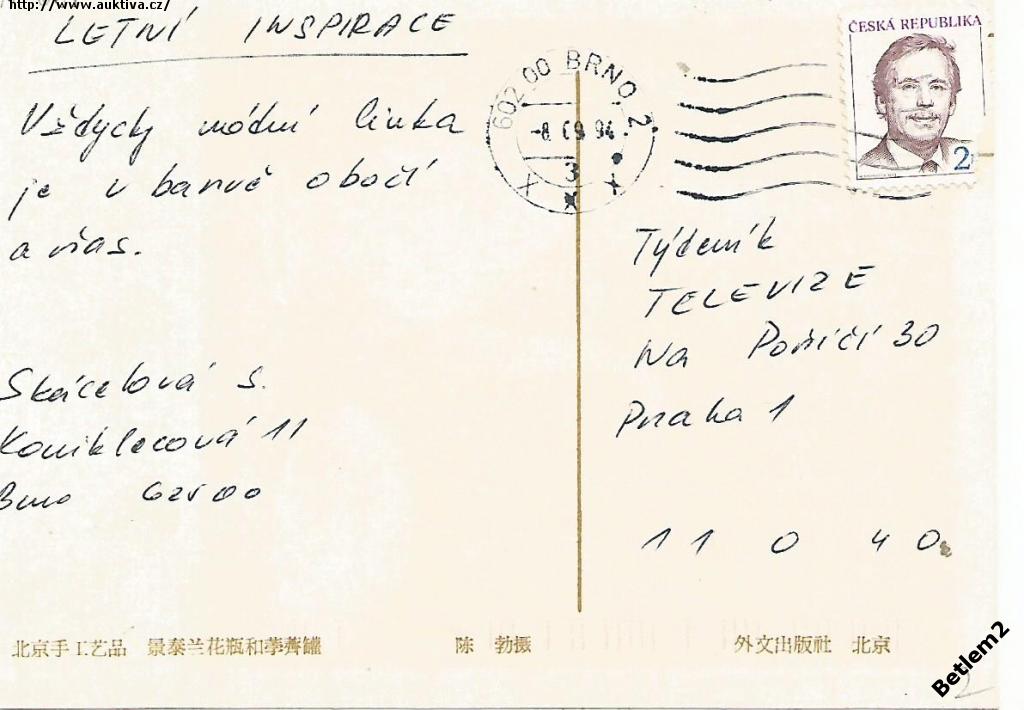 http://www.auktiva.cz/
LETNÍ INSPIRACE
Vždycky módní linka
je v barvě obočí
a řas.
Skácelová S.
Koniklecová 11
Brno 62500
602 00 BRNO 2
-8.09.94.
3
x x x
ČESKÁ REPUBLIKA
2
Týdeník
TELEVIZE
Na Poříčí 30
Praha 1
11 0 40
北京手工艺品 景泰兰花瓶和荸薺罐
陈 勃摄
外文出版社 北京
Betlem2
2